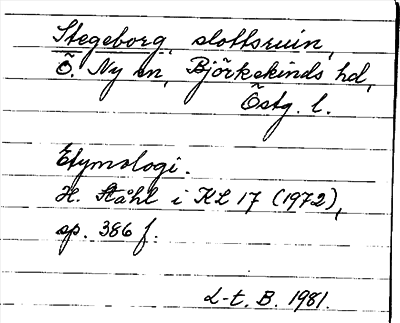 Stegeborg, slottsruin,
Ö. Ny en, Björkekinds hd,
Östg. l.
Etymologi.
H. Ståhl i KL 17 (1972),
sp. 386 f.
L-t. B. 1981.